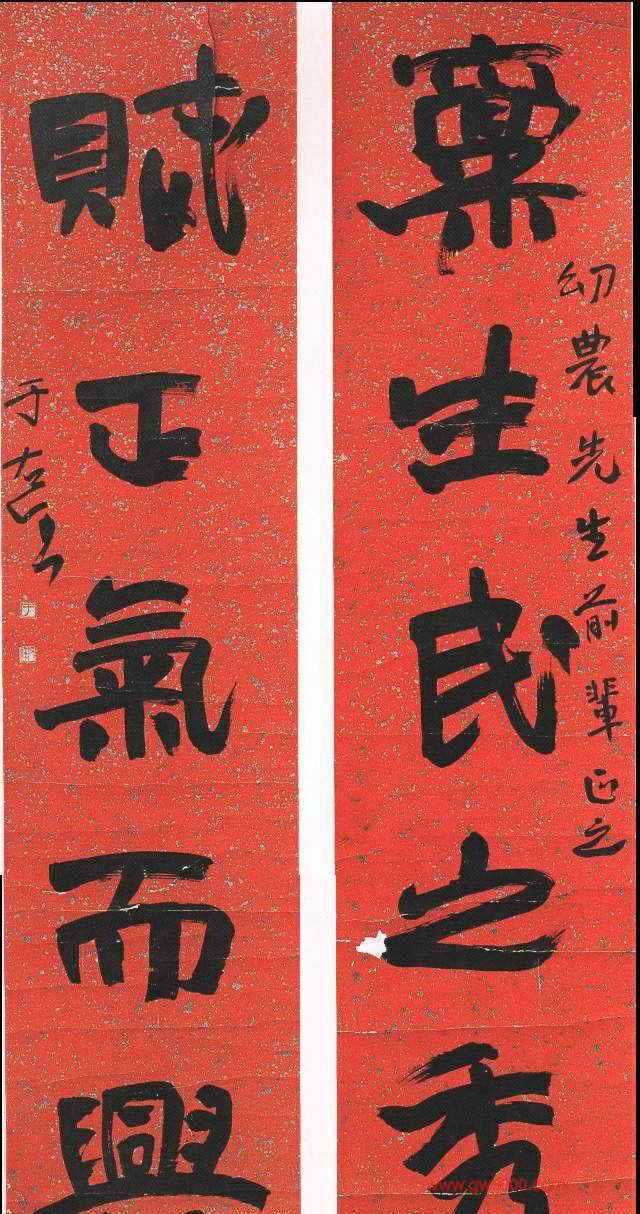 幼農先生前輩正之
稟生民之秀
賦正氣而興
于右任